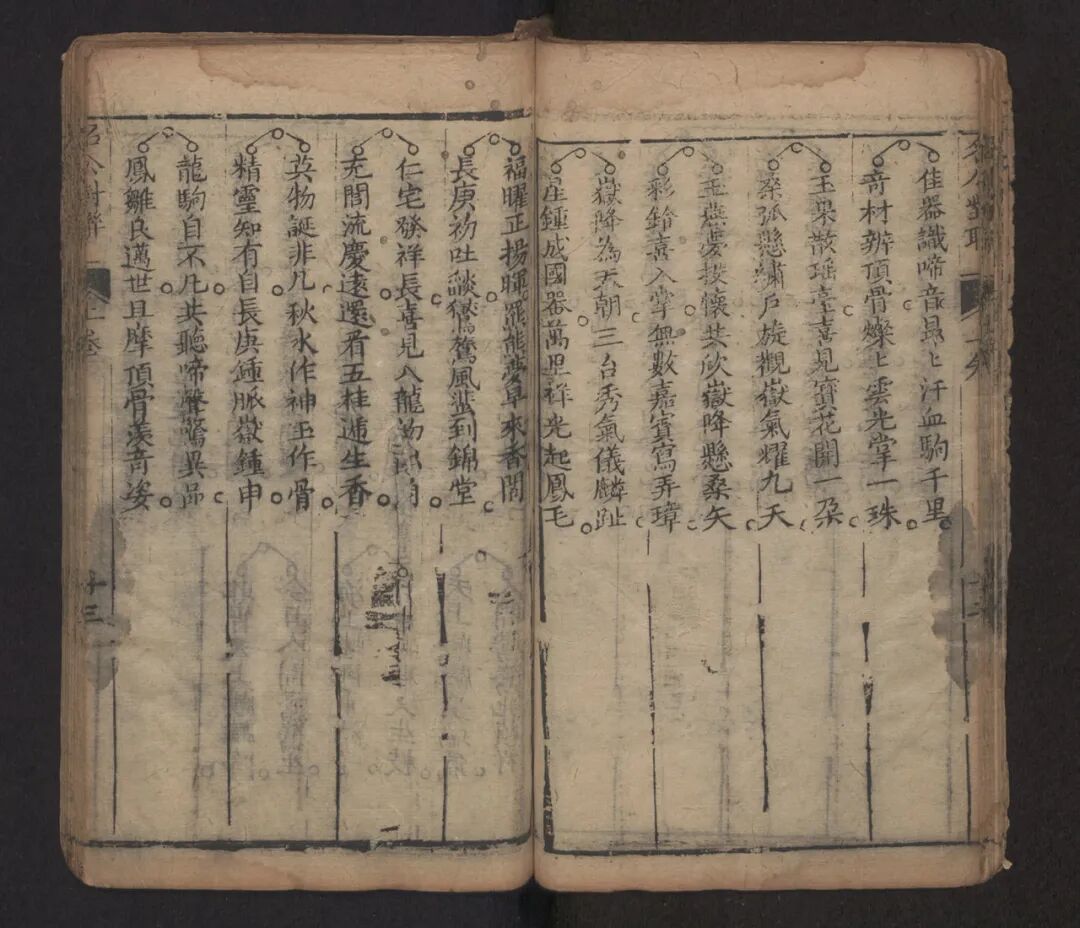 佳器識啼音昻〻汗血駒千里
奇材辨頂骨燦〻雲光掌一珠
玉果散瑶臺喜見寳花開一朶
桑弧懸繡户旋觀嶽氣耀九天
玉燕夢投懷共欣嶽降懸桑矢
彩鈴喜入掌無數嘉賓寫弄璋
嶽降為天朝三台秀氣儀麟趾
星鍾成國器萬里祥光起鳳毛
福曜正揚暉羆熊夢草來香閣
長庚初吐燄鸑鷟風蜚到錦堂
仁宅發祥長喜見八龍
充閭流慶遠還看五桂遞生香
英物誕非凡秋水作神玉作骨
精靈知有自長庚鍾脈嶽鍾申
龍駒自不凡共聽啼聲驚異品
鳳雛良邁世且摩頂骨羡奇姿
名公對聯
上卷
十三